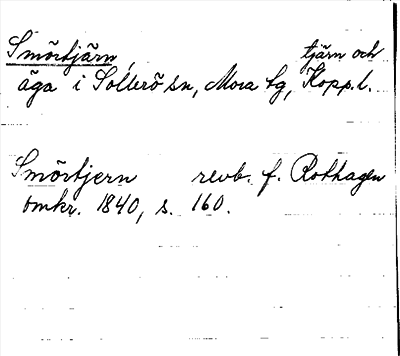 Smörtjärn, tjärn och
äga i Sollerö sn, Mora tg, Kopp. l.
Smörtjern revb. f. Rothagen
omkr. 1840, s. 160.